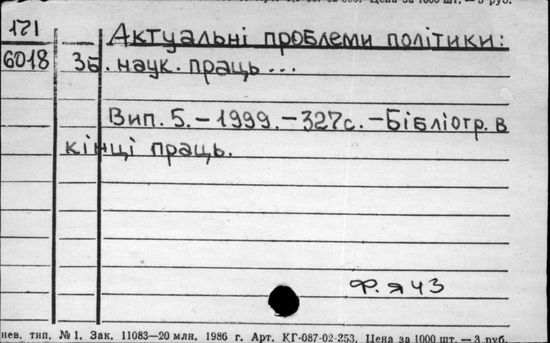 171
6018
Актуальні проблеми політики:
Зб. наук. праць...
Вип. 5. – 1999. – 327с. – Бібліогр. в
кінці праць.
Ф. я 43
нев. тип. №1. Зак. 11083—20 млн. 1986 г. Арт. КГ-087-02-253. Цена за 1000 шт. — 3 руб.